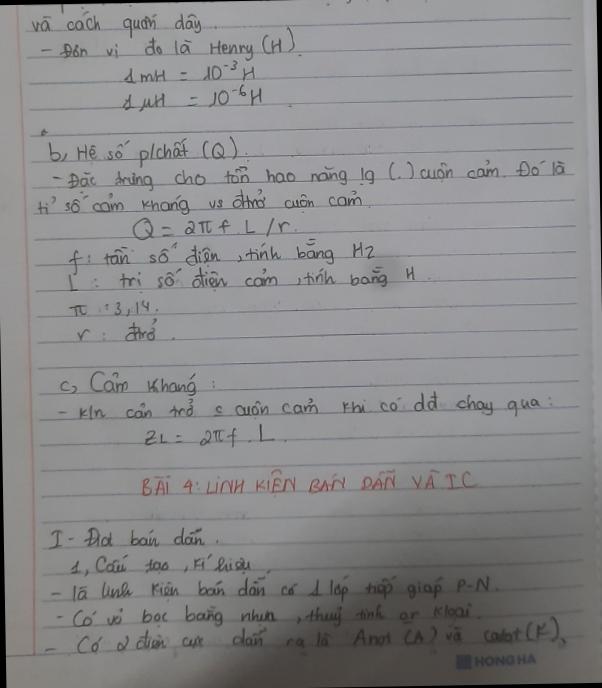 và cách quấn dây.
- Đơn vị đo là Henry (H)
1 mH = 10⁻³ H
1 μH = 10⁻⁶ H
b, Hệ số p/chất (Q).
- Đặc trưng cho tổn hao năng lg (.) cuộn cảm. Đó là
tỉ số cảm kháng vs đtrở cuộn cảm
Q = 2π f. L / r.
f: tần số điện, tính bằng Hz
L : trị số điện cảm, tính bằng H.
π : 3,14.
r : đtrở.
c, Cảm kháng:
- kn cản trở c cuộn cảm khi có dđ chạy qua:
ZL = 2πf. L.
BÀI 4: LINH KIỆN BÁN DẪN VÀ IC
I - Điot bán dẫn.
1, Cấu tạo, kí hiệu
- là linh kiện bán dẫn có 1 lớp tiếp giáp P-N.
- Có vỏ bọc bằng nhựa, thuỷ tinh or kloại.
- Có 2 điện cực dẫn ra là Anot (A) và catot (K).
HONG HA